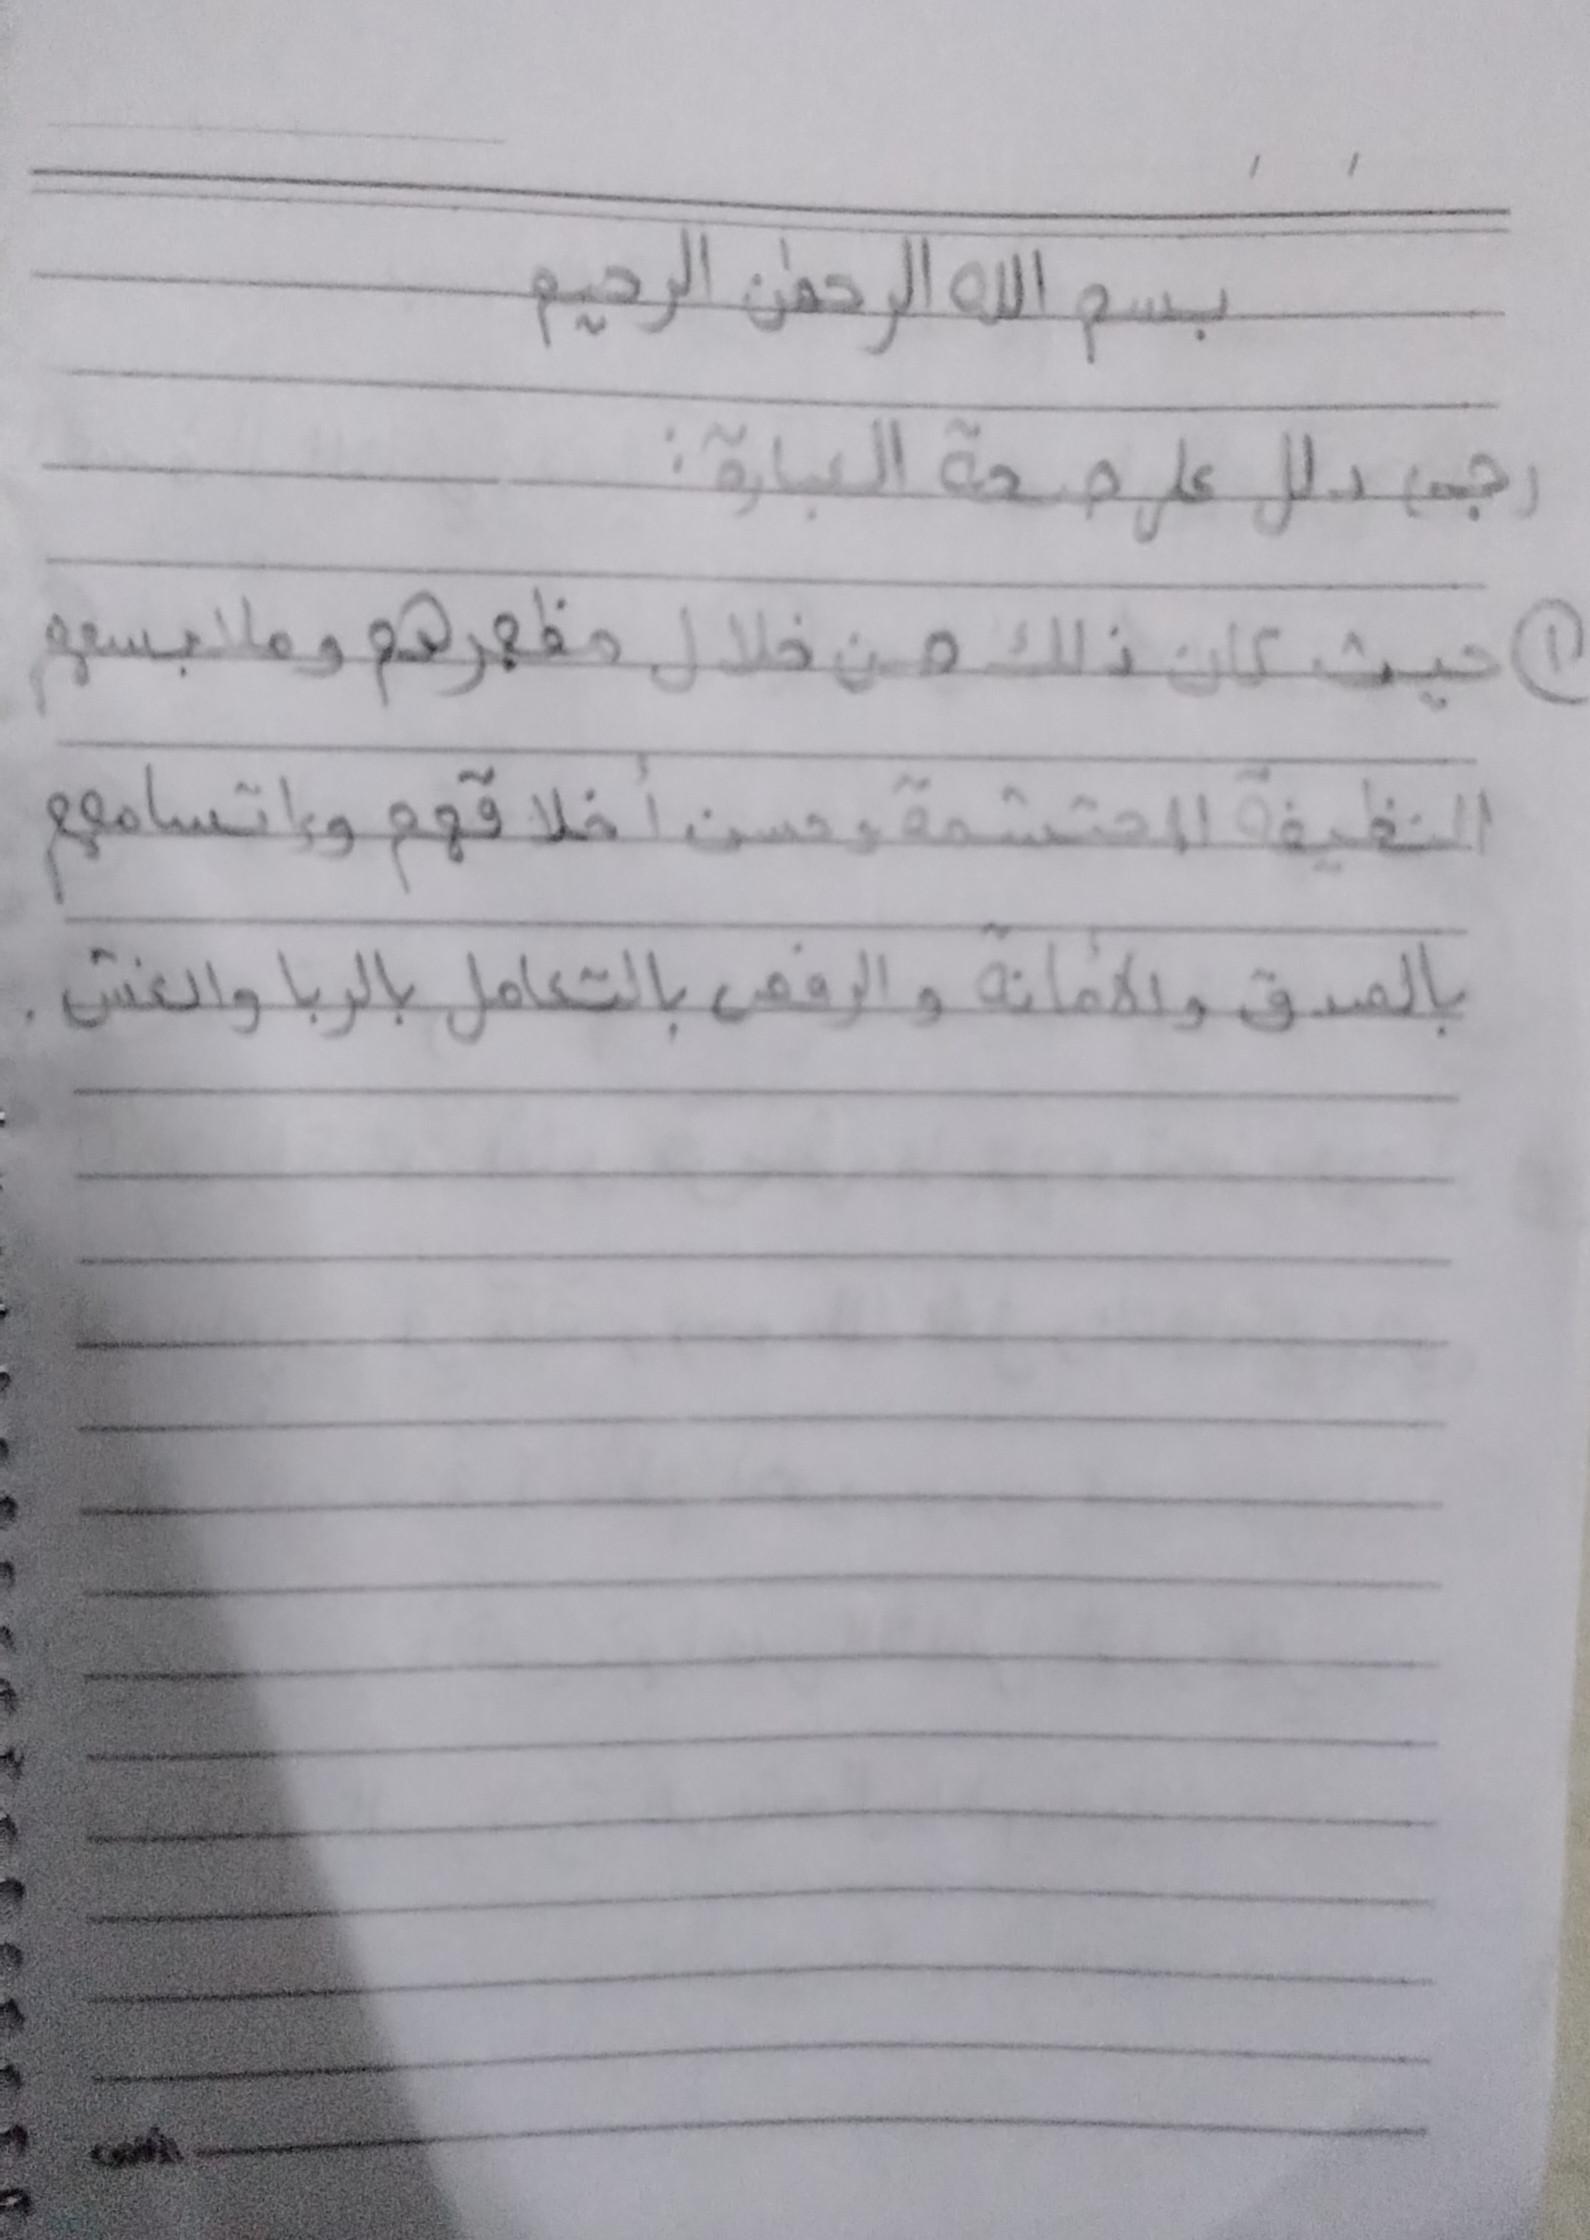 بسم الله الرحمن الرحيم
دلل على صحة العبارة:
① حيث كان ذلك من خلال مظهرهم وملابسهم
النظيفة المحتشمة وحسن أخلاقهم وإتسامهم
بالصدق والأمانة والرفض بالتعامل بالربا والغش.